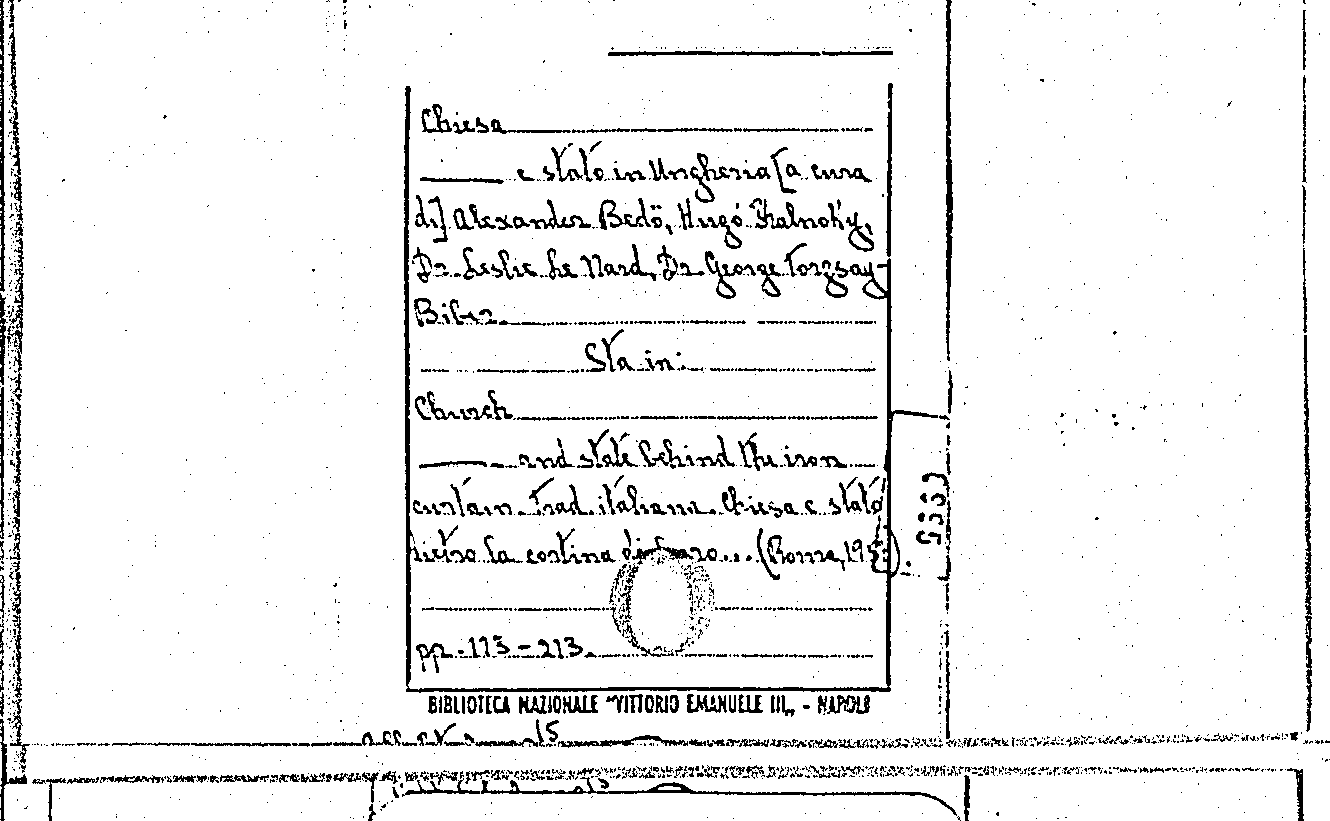 Chiesa
——— e stato in Ungheria [a cura
di] Alexander Bedö, Hugó Kalnoky,
Dr. Leslie Le Nard, Dr. George Torzsay-
Biber.
Sta in:
Church
——— and state behind the iron
curtain. Trad. italiana. Chiesa e stato
dietro la cortina di ferro... (Roma, 195
pp. 113-213.
BIBLIOTECA NAZIONALE "VITTORIO EMANUELE III„ - NAPOLI